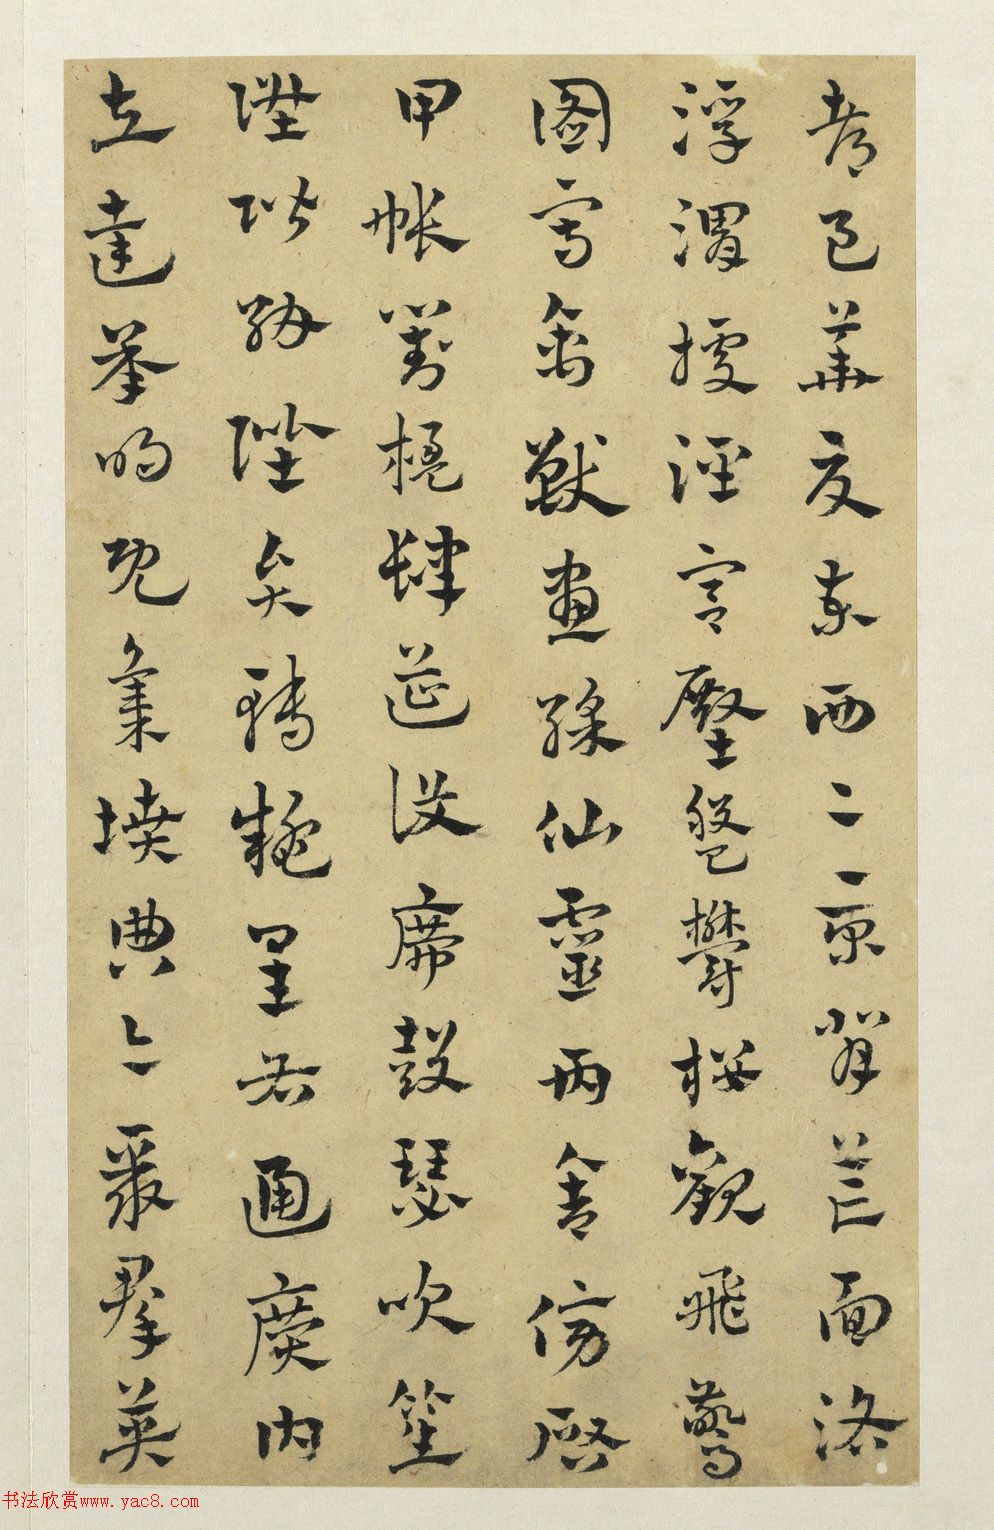 都邑華夏東西二京背芒面洛
浮渭據涇宮殿盤鬱樓觀飛驚
圖寫禽獸畫綵仙靈丙舍傍啓
甲帳對楹肆筵設席鼓瑟吹笙
陞階納陛弁轉疑星右通廣內
左達承明既集墳典亦聚群英
书法欣赏www.yac8.com